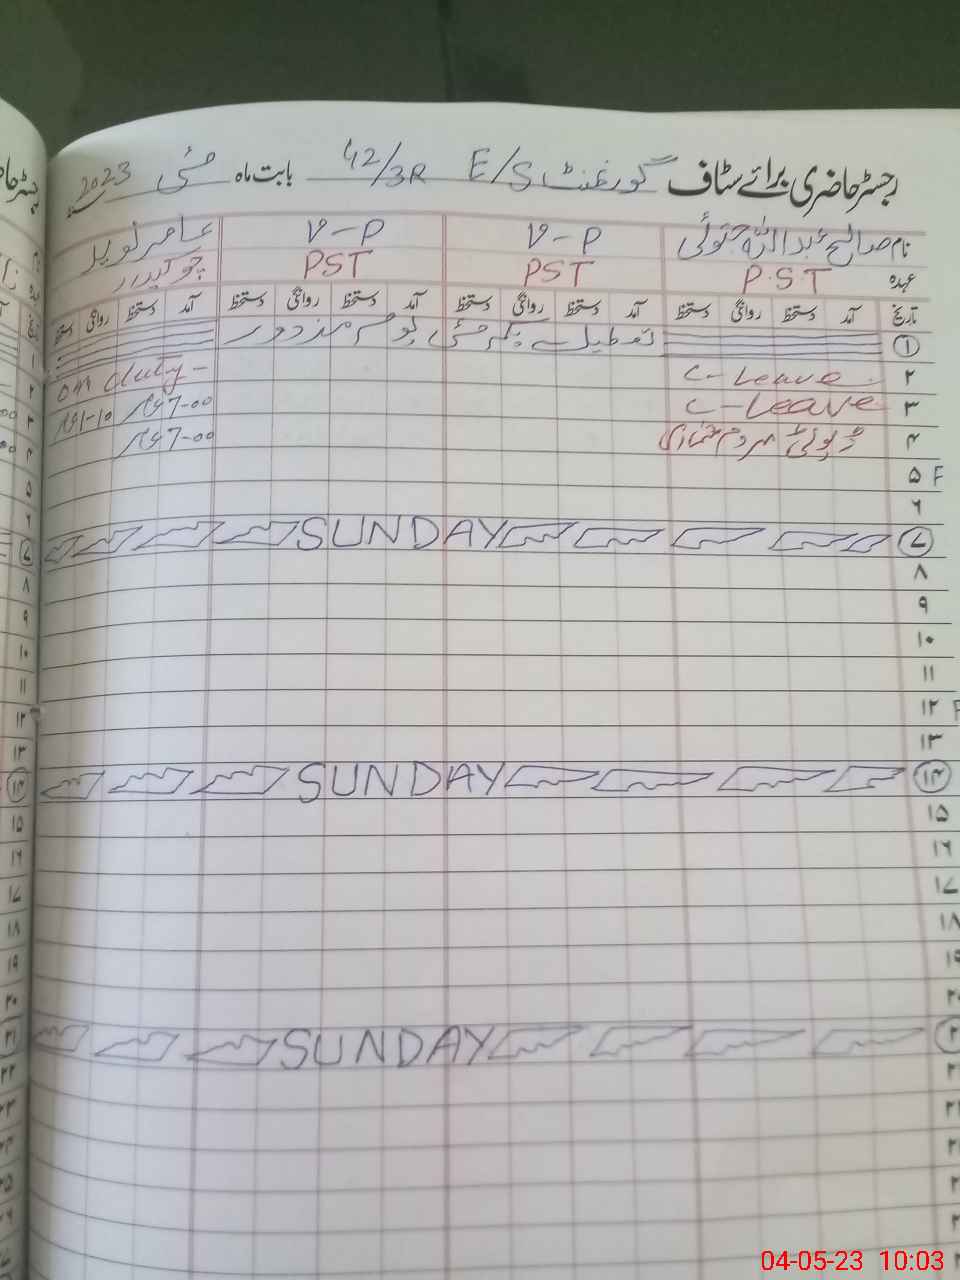 رجسٹر حاضری برائے سٹاف گورنمنٹ E/S 42/3R بابت ماہ مئی 2023
نام صالح عبداللہ جتوئی V-P V-P عامر نوید
عہدہ P.S.T PST PST چوکیدار
تاریخ آمد دستخط روانگی دستخط آمد دستخط روانگی دستخط آمد دستخط روانگی دستخط آمد دستخط روانگی دستخط
۱ تعطیل یکم مئی یوم مزدور
۲ C-Leave on duty-
۳ C-Leave 7-00 1-10
۴ ڈیوٹی مردم شماری 7-00
۵ F
۶
۷ SUNDAY
۸
۹
۱۰
۱۱
۱۲ F
۱۳
۱۴ SUNDAY
۱۵
۱۶
۱۷
۱۸
SUNDAY
04-05-23 10:03